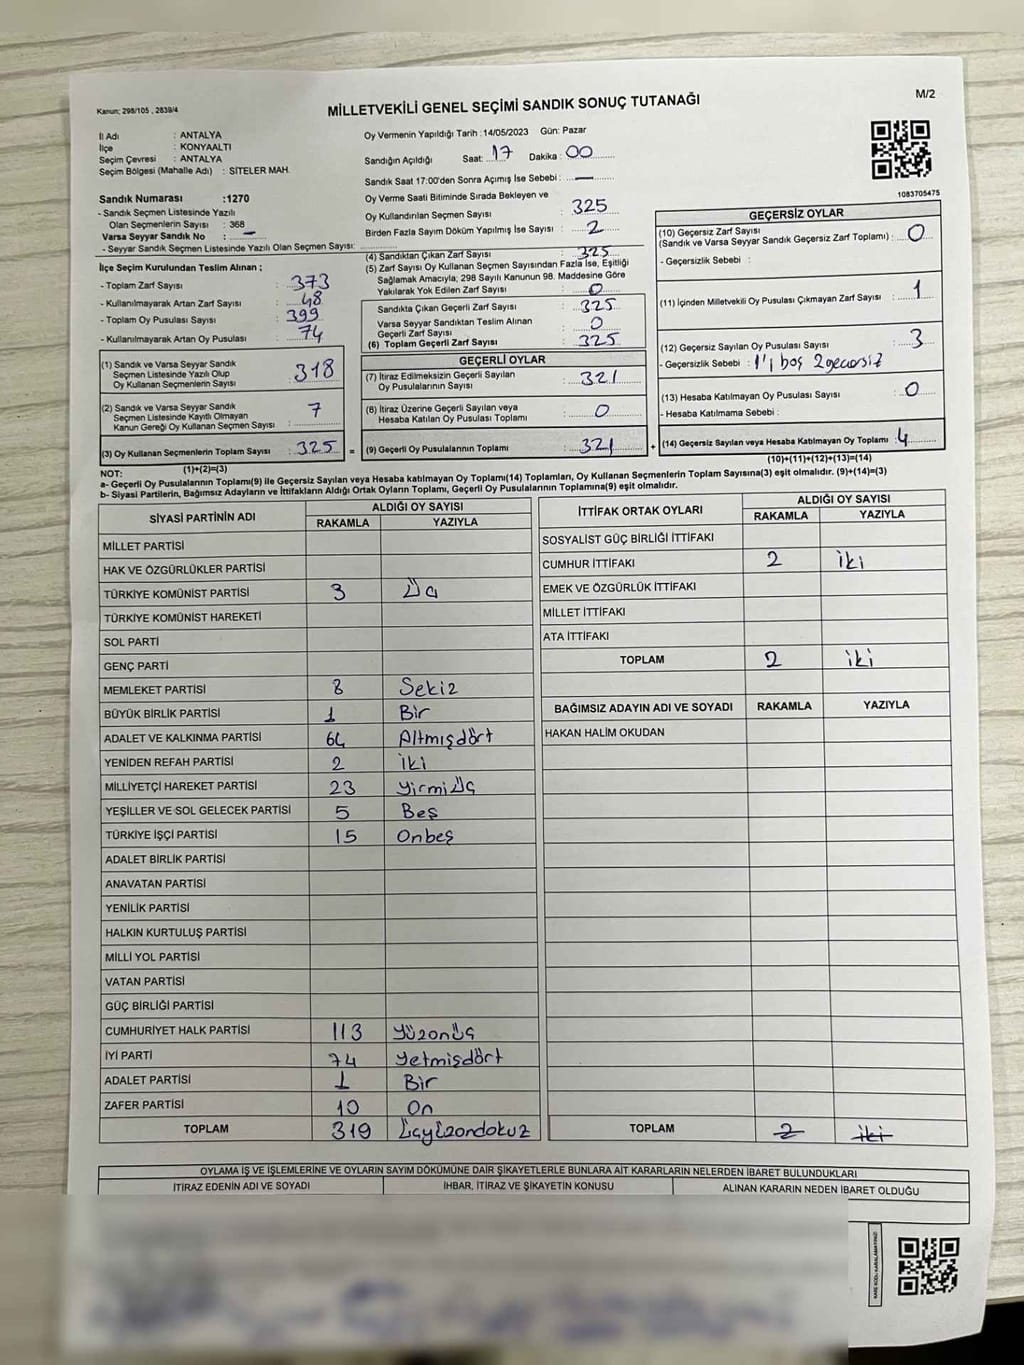 Kanun; 298/105 , 2839/4
MİLLETVEKİLİ GENEL SEÇİMİ SANDIK SONUÇ TUTANAĞI
M/2
İl Adı : ANTALYA
İlçe : KONYAALTI
Seçim Çevresi : ANTALYA
Seçim Bölgesi (Mahalle Adı) : SİTELER MAH.
Sandık Numarası :1270
- Sandık Seçmen Listesinde Yazılı
Olan Seçmenlerin Sayısı : 368
Varsa Seyyar Sandık No : –
- Seyyar Sandık Seçmen Listesinde Yazılı Olan Seçmen Sayısı:
Oy Vermenin Yapıldığı Tarih :14/05/2023 Gün: Pazar
Sandığın Açıldığı Saat: 17 Dakika : 00
Sandık Saat 17:00'den Sonra Açımış İse Sebebi : –
Oy Verme Saati Bitiminde Sırada Bekleyen ve
Oy Kullandırılan Seçmen Sayısı : 325
Birden Fazla Sayım Döküm Yapılmış İse Sayısı : 2
1083705475
İlçe Seçim Kurulundan Teslim Alınan ;
- Toplam Zarf Sayısı : 373
- Kullanılmayarak Artan Zarf Sayısı : 48
- Toplam Oy Pusulası Sayısı : 399
- Kullanılmayarak Artan Oy Pusulası : 74
(1) Sandık ve Varsa Seyyar Sandık
Seçmen Listesinde Yazılı Olup
Oy Kullanan Seçmenlerin Sayısı : 318
(2) Sandık ve Varsa Seyyar Sandık
Seçmen Listesinde Kayıtlı Olmayan
Kanun Gereği Oy Kullanan Seçmen Sayısı : 7
(3) Oy Kullanan Seçmenlerin Toplam Sayısı : 325 =
(1)+(2)=(3)
(4) Sandıktan Çıkan Zarf Sayısı : 325
(5) Zarf Sayısı Oy Kullanan Seçmen Sayısından Fazla İse, Eşitliği
Sağlamak Amacıyla; 298 Sayılı Kanunun 98. Maddesine Göre
Yakılarak Yok Edilen Zarf Sayısı : 0
Sandıkta Çıkan Geçerli Zarf Sayısı : 325
Varsa Seyyar Sandıktan Teslim Alınan
Geçerli Zarf Sayısı : 0
(6) Toplam Geçerli Zarf Sayısı : 325
GEÇERLİ OYLAR
(7) İtiraz Edilmeksizin Geçerli Sayılan
Oy Pusulalarının Sayısı : 321
(8) İtiraz Üzerine Geçerli Sayılan veya
Hesaba Katılan Oy Pusulası Toplamı : 0
(9) Geçerli Oy Pusulalarının Toplamı : 321 +
GEÇERSİZ OYLAR
(10) Geçersiz Zarf Sayısı
(Sandık ve Varsa Seyyar Sandık Geçersiz Zarf Toplamı) : 0
- Geçersizlik Sebebi :
(11) İçinden Milletvekili Oy Pusulası Çıkmayan Zarf Sayısı : 1
(12) Geçersiz Sayılan Oy Pusulası Sayısı : 3
- Geçersizlik Sebebi : 1'i boş 2 gecersiz
(13) Hesaba Katılmayan Oy Pusulası Sayısı : 0
- Hesaba Katılmama Sebebi :
(14) Geçersiz Sayılan veya Hesaba Katılmayan Oy Toplamı : 4
(10)+(11)+(12)+(13)=(14)
NOT:
a- Geçerli Oy Pusulalarının Toplamı(9) ile Geçersiz Sayılan veya Hesaba katılmayan Oy Toplamı(14) Toplamları, Oy Kullanan Seçmenlerin Toplam Sayısına(3) eşit olmalıdır. (9)+(14)=(3)
b- Siyasi Partilerin, Bağımsız Adayların ve İttifakların Aldığı Ortak Oyların Toplamı, Geçerli Oy Pusulalarının Toplamına(9) eşit olmalıdır.
SİYASİ PARTİNİN ADI ALDIĞI OY SAYISI
RAKAMLA YAZIYLA
MİLLET PARTİSİ
HAK VE ÖZGÜRLÜKLER PARTİSİ
TÜRKİYE KOMÜNİST PARTİSİ 3 Üç
TÜRKİYE KOMÜNİST HAREKETİ
SOL PARTİ
GENÇ PARTİ
MEMLEKET PARTİSİ 8 Sekiz
BÜYÜK BİRLİK PARTİSİ 1 Bir
ADALET VE KALKINMA PARTİSİ 64 Altmışdört
YENİDEN REFAH PARTİSİ 2 iki
MİLLİYETÇİ HAREKET PARTİSİ 23 Yirmi Üç
YEŞİLLER VE SOL GELECEK PARTİSİ 5 Beş
TÜRKİYE İŞÇİ PARTİSİ 15 Onbeş
ADALET BİRLİK PARTİSİ
ANAVATAN PARTİSİ
YENİLİK PARTİSİ
HALKIN KURTULUŞ PARTİSİ
MİLLİ YOL PARTİSİ
VATAN PARTİSİ
GÜÇ BİRLİĞİ PARTİSİ
CUMHURİYET HALK PARTİSİ 113 Yüzonüç
İYİ PARTİ 74 Yetmişdört
ADALET PARTİSİ 1 Bir
ZAFER PARTİSİ 10 On
TOPLAM 319 Üçyüzondokuz
İTTİFAK ORTAK OYLARI ALDIĞI OY SAYISI
RAKAMLA YAZIYLA
SOSYALİST GÜÇ BİRLİĞİ İTTİFAKI
CUMHUR İTTİFAKI 2 iki
EMEK VE ÖZGÜRLÜK İTTİFAKI
MİLLET İTTİFAKI
ATA İTTİFAKI
TOPLAM 2 iki
BAĞIMSIZ ADAYIN ADI VE SOYADI RAKAMLA YAZIYLA
HAKAN HALİM OKUDAN
TOPLAM 2 iki
OYLAMA İŞ VE İŞLEMLERİNE VE OYLARIN SAYIM DÖKÜMÜNE DAİR ŞİKAYETLERLE BUNLARA AİT KARARLARIN NELERDEN İBARET BULUNDUKLARI
İTİRAZ EDENİN ADI VE SOYADI İHBAR, İTİRAZ VE ŞİKAYETİN KONUSU ALINAN KARARIN NEDEN İBARET OLDUĞU